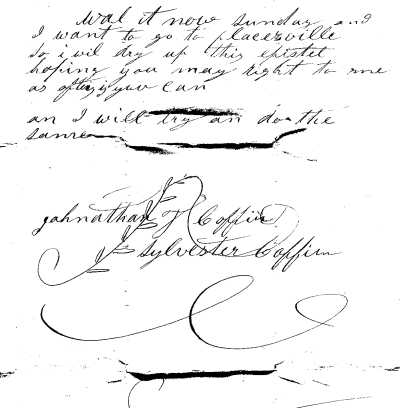 wal it now sunday and
I want to go to placerville
So i wil dry up this epistel
hoping you may right to me
as often as you can
an I will try an do the
same
Jahnathan J Coffin
Sylvester Coffin